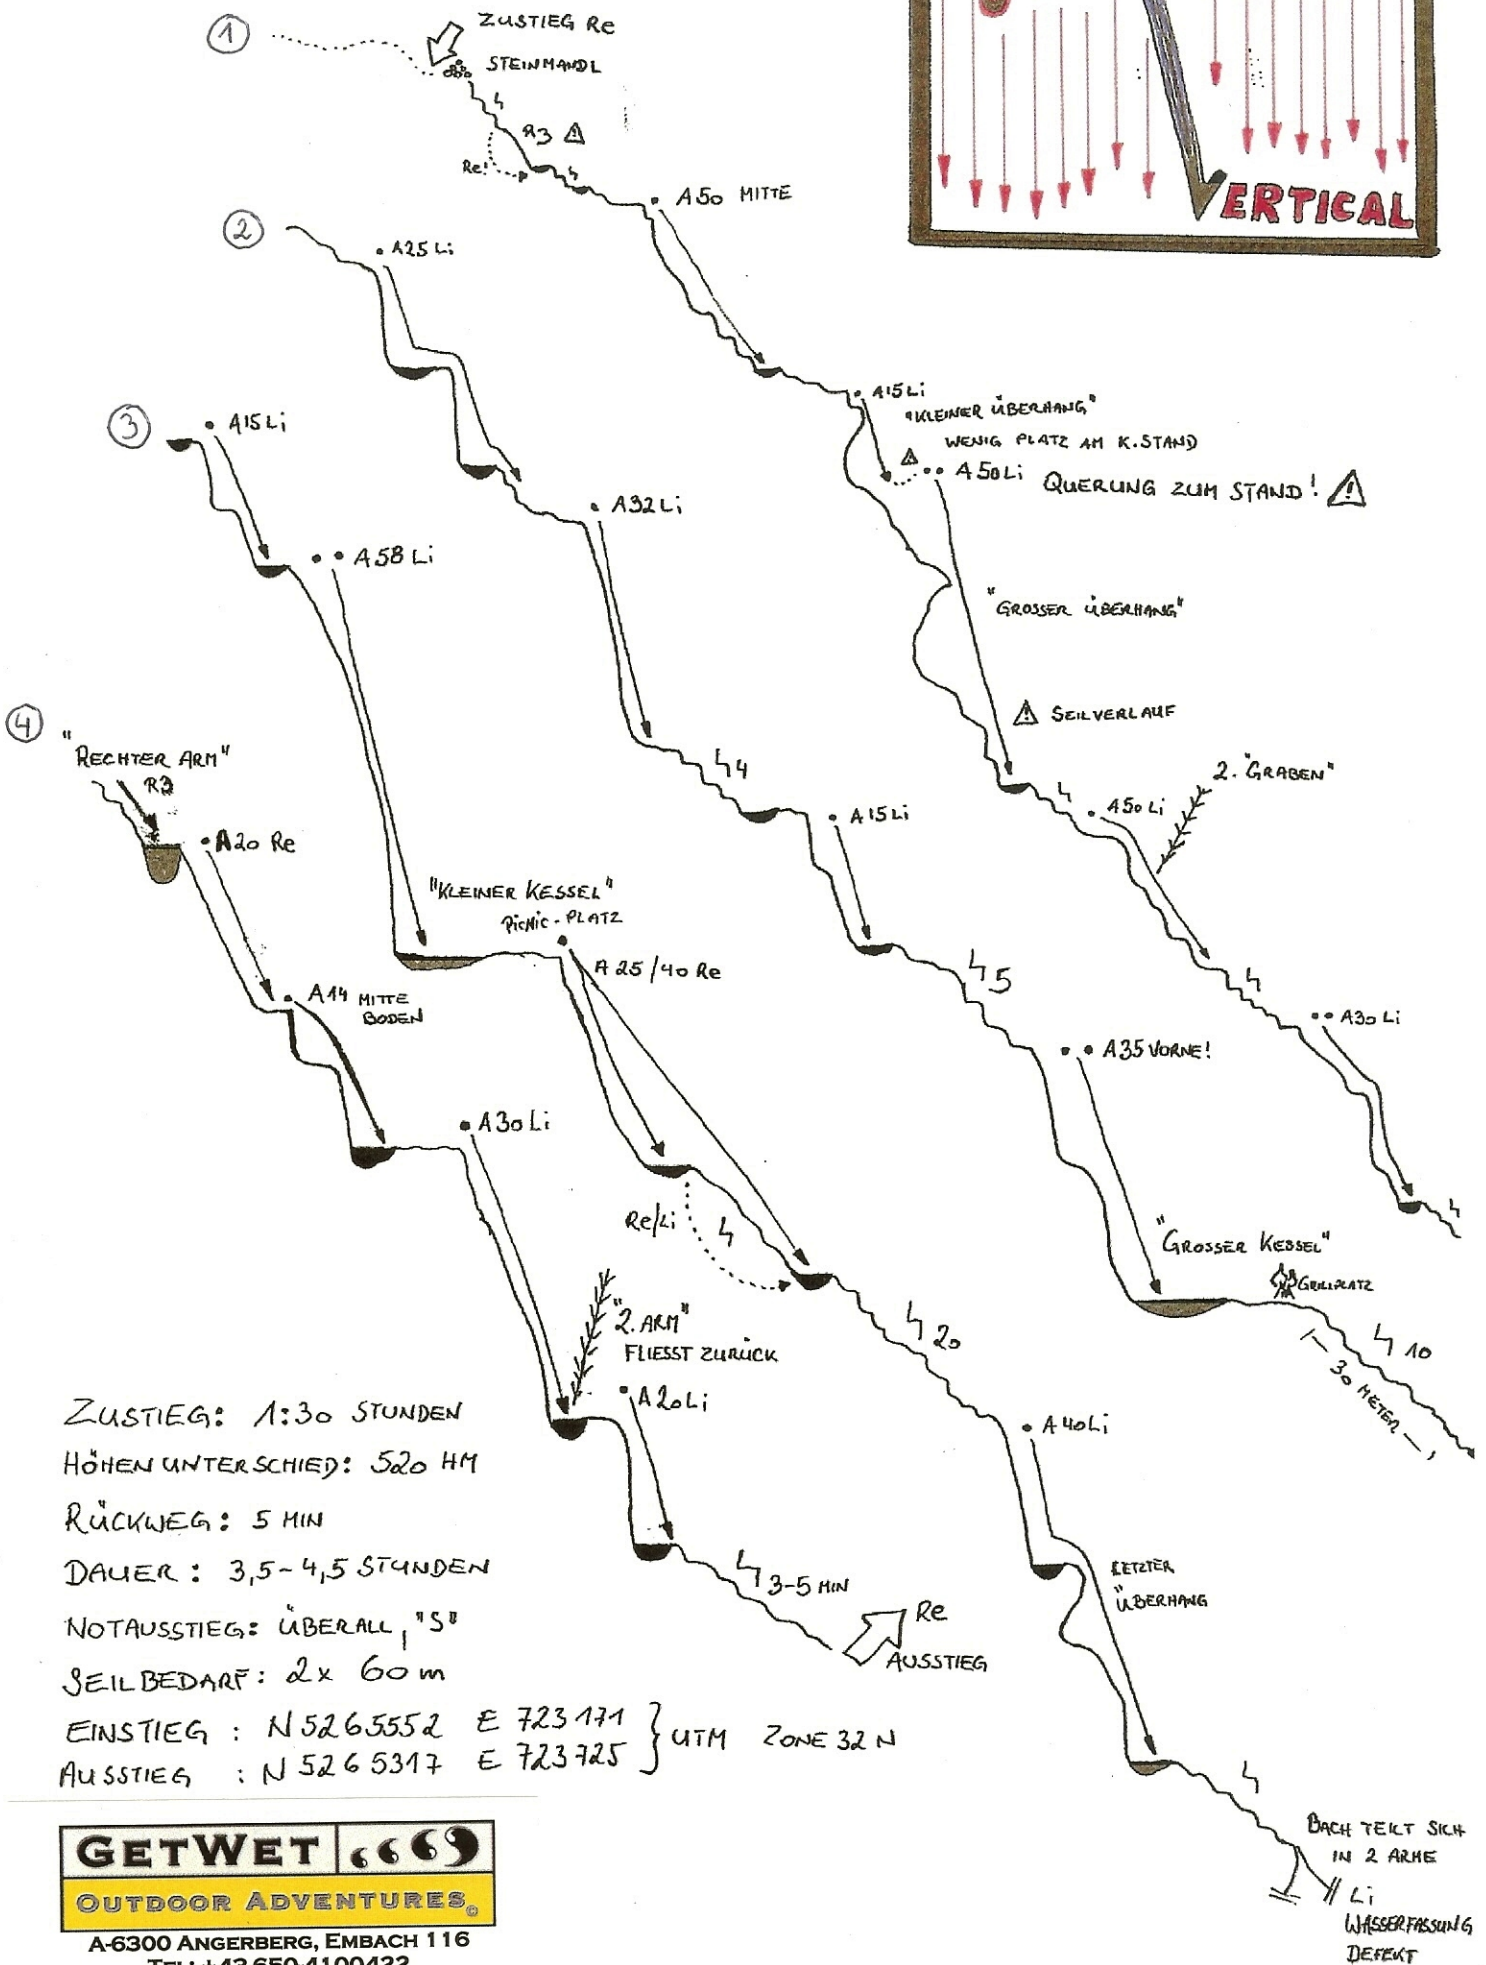 VERTICAL
1
ZUSTIEG Re
STEINMANDL
R3
Re!
A50 MITTE
A15 Li
"KLEINER ÜBERHANG"
WENIG PLATZ AM K.STAND
A50 Li QUERUNG ZUM STAND!
"GROSSER ÜBERHANG"
SEILVERLAUF
A50 Li
2. "GRABEN"
A30 Li
2
A25 Li
A32 Li
4
A15 Li
5
A35 VORNE!
"GROSSER KESSEL"
GRILLPLATZ
10
30 METER
3
A15 Li
A58 Li
"KLEINER KESSEL"
PICNIC-PLATZ
A 25/40 Re
Re/Li
20
A 40 Li
LETZTER
ÜBERHANG
BACH TEILT SICH
IN 2 ARME
Li
WASSERFASSUNG
DEFEKT
4
"RECHTER ARM"
R3
A20 Re
A14 MITTE
BODEN
A30 Li
"2. ARM"
FLIESST ZURÜCK
A20 Li
3-5 MIN
Re
AUSSTIEG
ZUSTIEG: 1:30 STUNDEN
HÖHENUNTERSCHIED: 520 HM
RÜCKWEG: 5 MIN
DAUER: 3,5-4,5 STUNDEN
NOTAUSSTIEG: ÜBERALL, "S"
SEILBEDARF: 2x 60m
EINSTIEG : N 5265552 E 723171
AUSSTIEG : N 5265317 E 723725
UTM ZONE 32 N
GETWET
OUTDOOR ADVENTURES©
A-6300 ANGERBERG, EMBACH 116